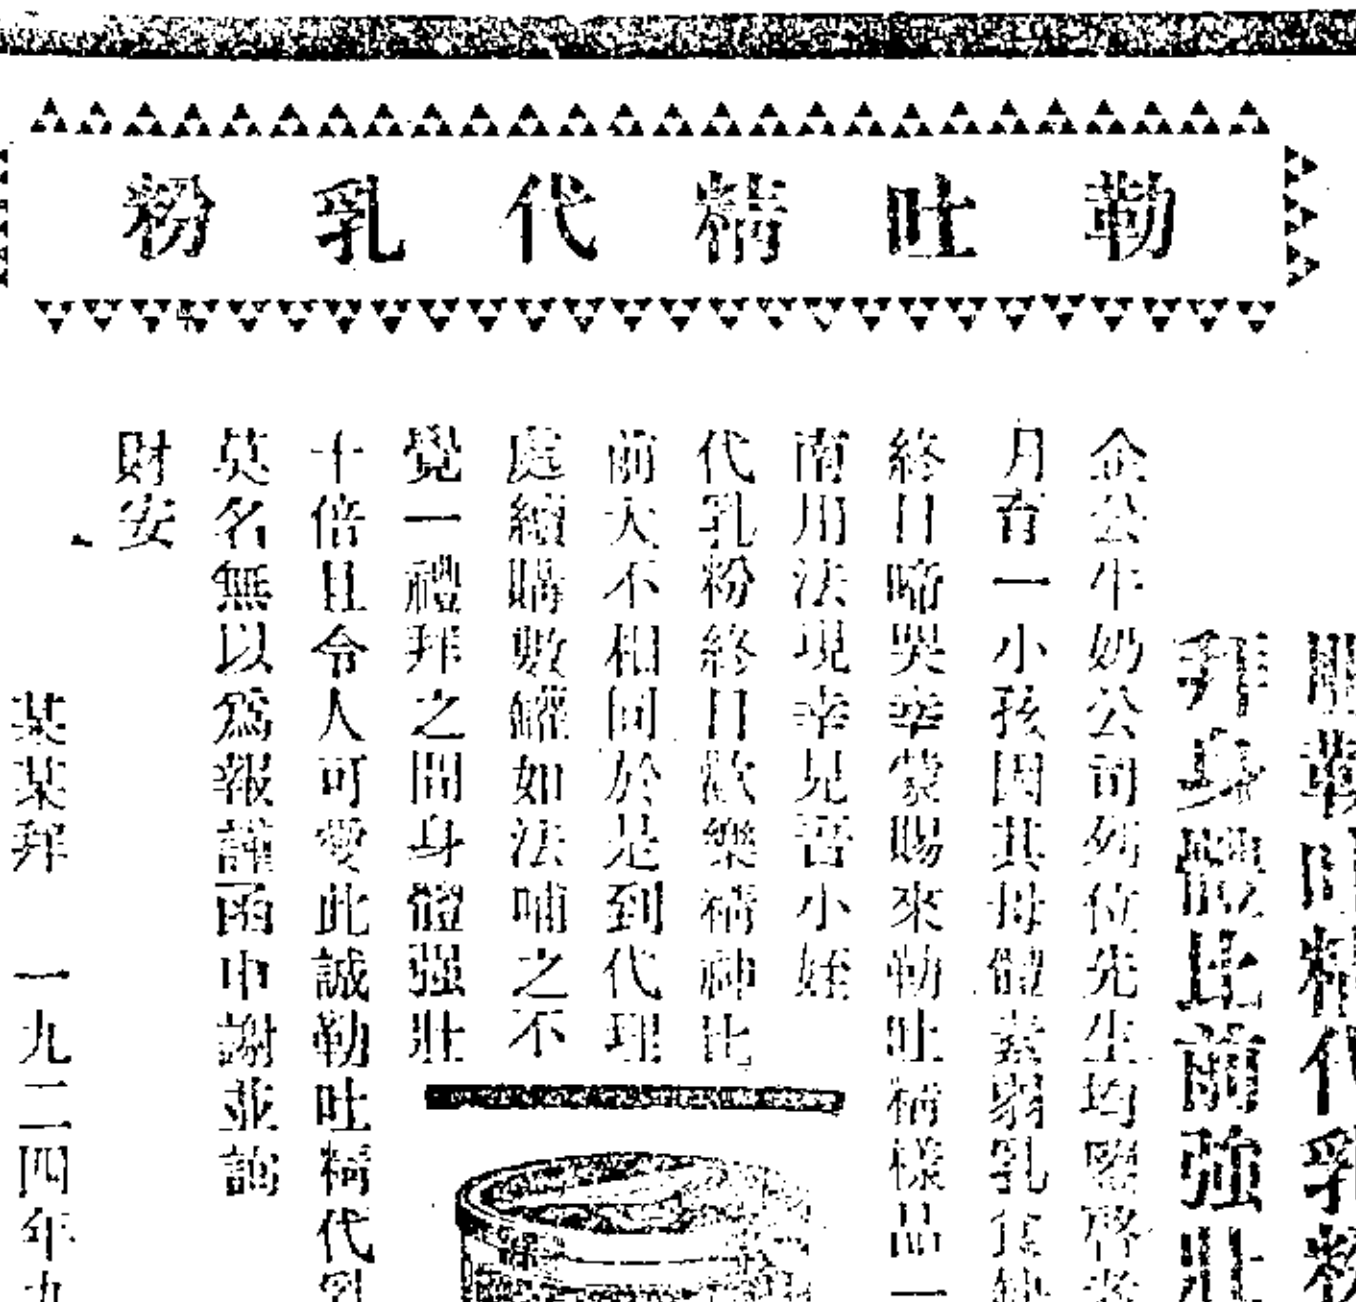 勒吐精代乳粉
精代乳粉
身體比前強壯
企公牛奶公司列位先生均鑒啓者
月育一小孩因其母體素弱乳食
終日啼哭幸蒙賜來勒吐精樣品一
南用法現幸見吾小姪
代乳粉終日歡樂精神比
前大不相同於是到代理
處續購數罐如法哺之不
覺一禮拜之間身體强壯
十倍且令人可愛此誠勒吐精代乳
莫名無以爲報謹函申謝並請
財安
某某拜 一九二四年九